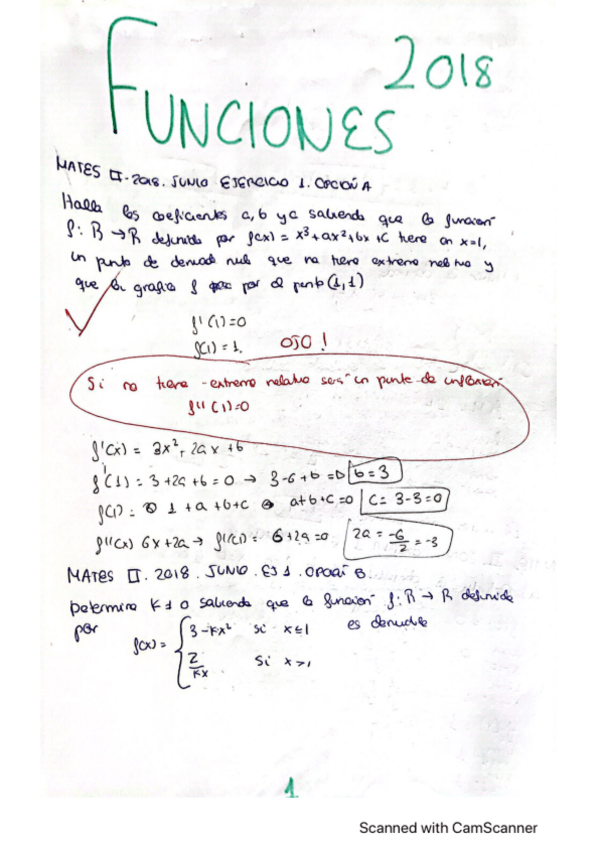 FUNCIONES 2018
MATES II. 2018. JUNIO EJERCICIO 1. OPCIÓN A
Halla los coeficientes a, b y c sabiendo que la función
f: R → R definida por f(x) = x³ + ax² + bx + c tiene en x=1,
un punto de derivada nula que no tiene extremo relativo y
que la grafica f por el punto (1,1)
f'(1)=0
f(1) = 1.
OJO!
Si no tiene extremo relativo será un punto de inflexión
f''(1)=0
f'(x) = 3x² + 2a x + b
f'(1) = 3 + 2a + b = 0 → 3-6+b = 0 b = 3
f(1) = 1 + a + b + c a+b+c = 0 c = 3-3=0
f''(x) 6x + 2a → f''(1) = 6+2a = 0 2a = -6/2 = -3
MATES II. 2018. JUNIO. EJ 1. OPCIÓN B
Determina K ≠ 0 sabiendo que la función f: R → R definida
por f(x) = { 3-kx² si x≤1 es derivable
2/kx si x>1
1
Scanned with CamScanner